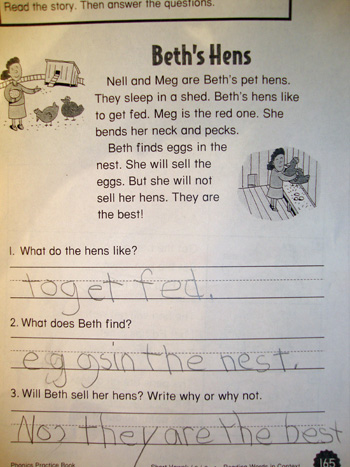 Read the story. Then answer the questions.
Beth's Hens
Nell and Meg are Beth's pet hens.
They sleep in a shed. Beth's hens like
to get fed. Meg is the red one. She
bends her neck and pecks.
Beth finds eggs in the
nest. She will sell the
eggs. But she will not
sell her hens. They are
the best!
1. What do the hens like?
to get fed.
2. What does Beth find?
eggs in the nest.
3. Will Beth sell her hens? Write why or why not.
No they are the best
Phonics Practice Book
Reading Words in Context
165